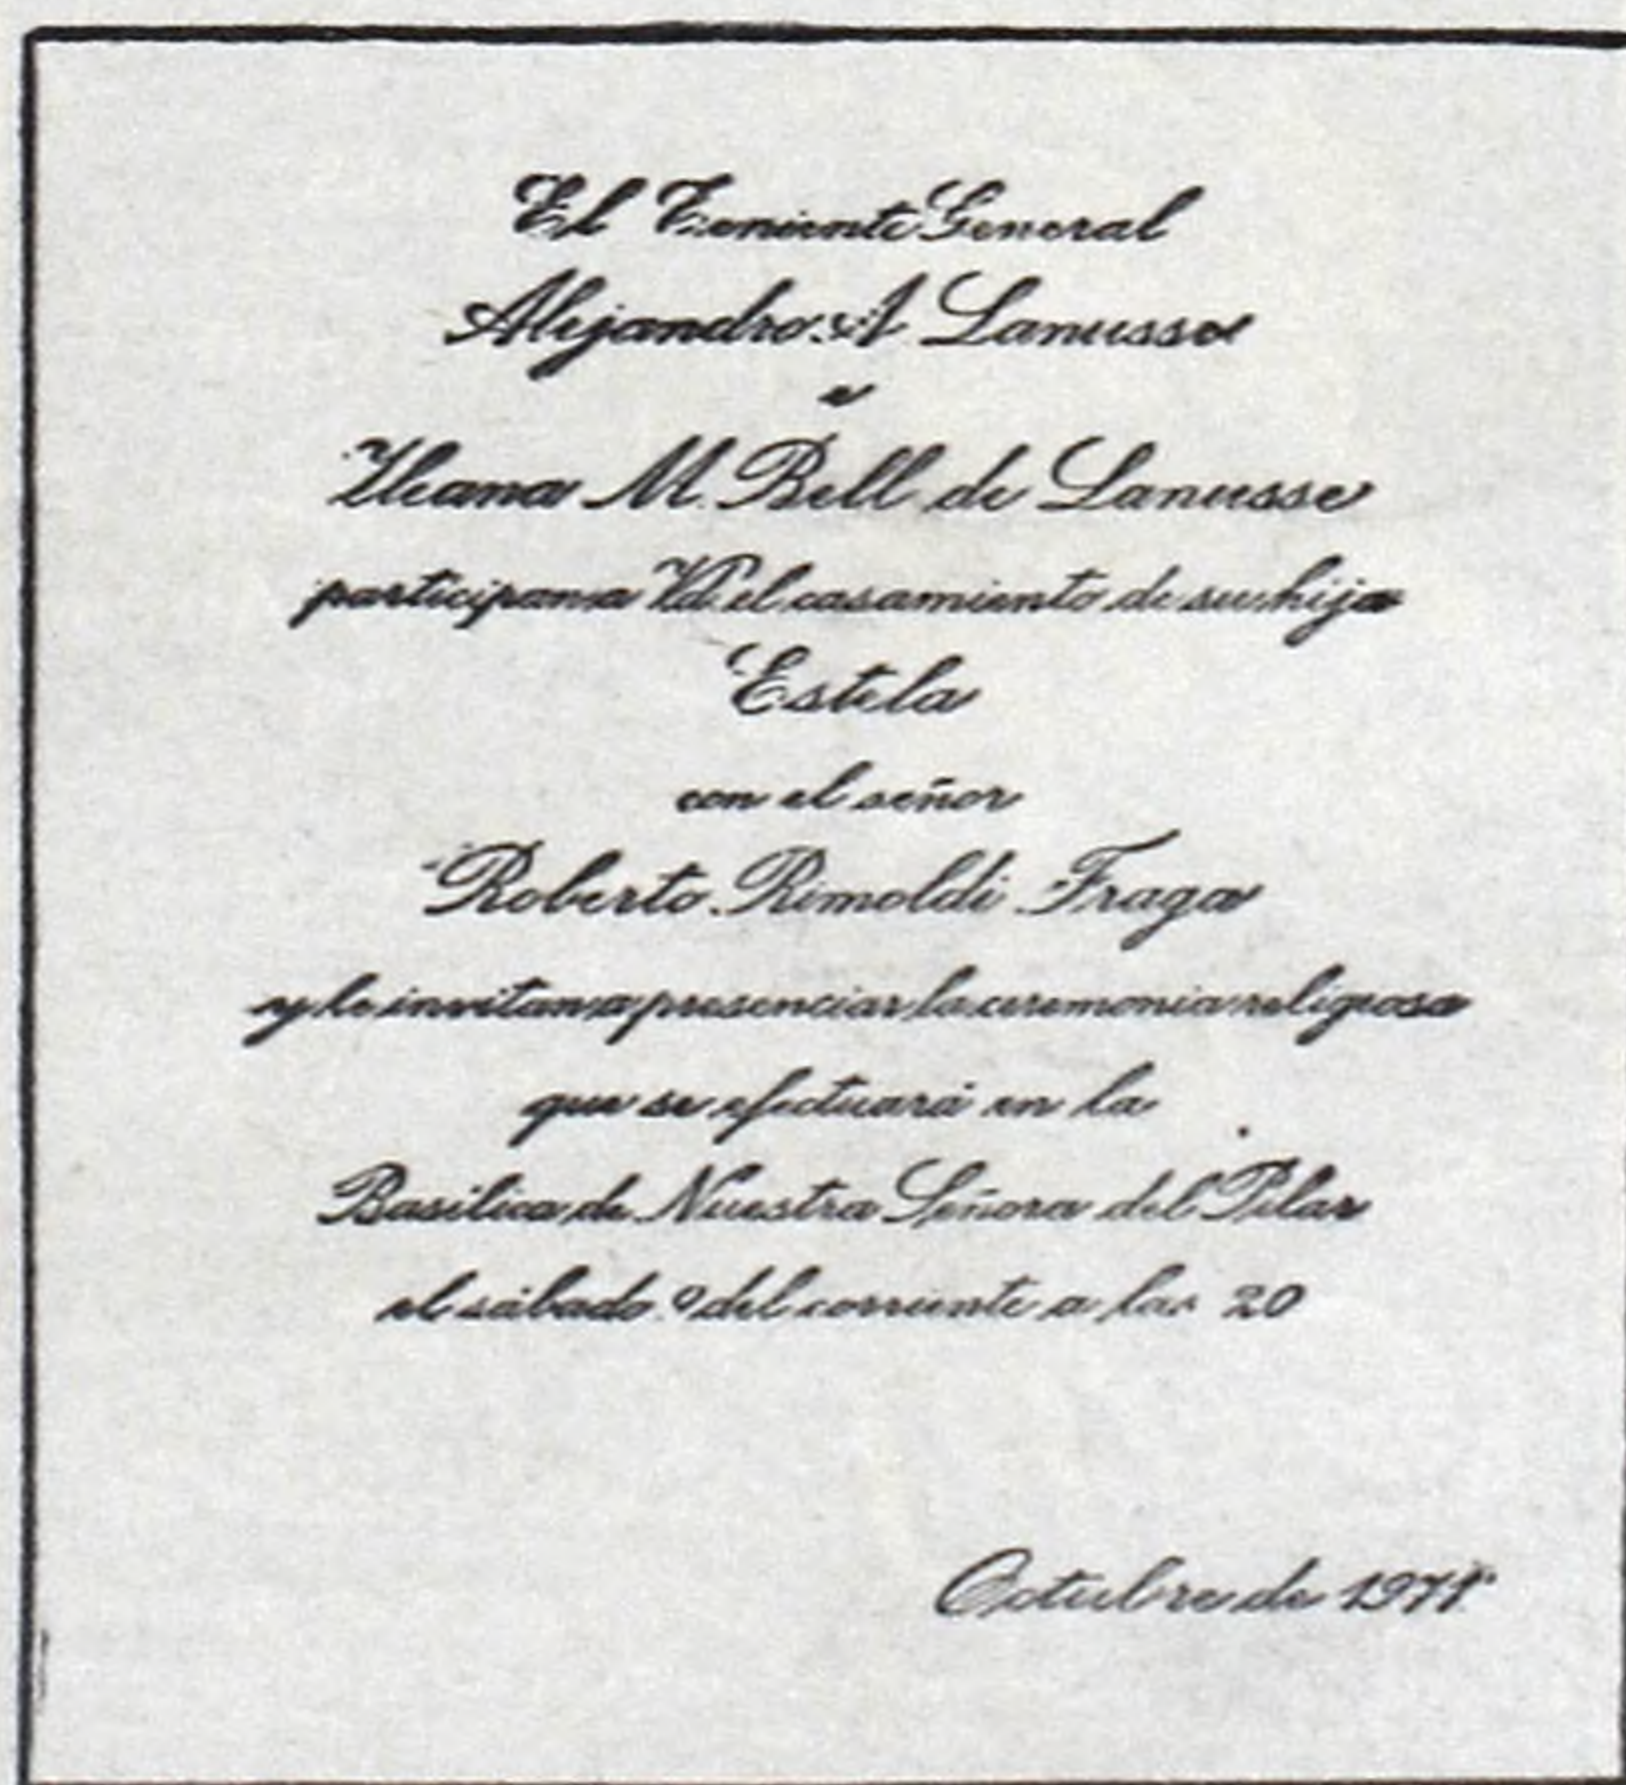 El Teniente General
Alejandro A Lanusse
e
Ileana M. Bell de Lanusse
participan a Vd. el casamiento de su hija
Estela
con el señor
Roberto Rimoldi Fraga
y le invitan a presenciar la ceremonia religiosa
que se efectuará en la
Basílica de Nuestra Señora del Pilar
el sábado 9 del corriente a las 20
Octubre de 1971